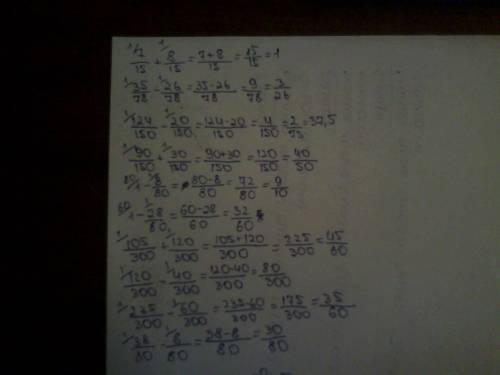 1/7/15 + 1/8/15 = 7+8/15 = 15/15 = 1
1/35/78 - 1/26/78 = 35-26/78 = 9/78 = 3/26
1/124/150 - 1/20/150 = 124-20/150 = 4/150 = 2/75 = 37,5
1/90/150 + 1/30/150 = 90+30/150 = 120/150 = 40/50
80/1 - 1/8/80 = 80-8/80 = 72/80 = 9/10
60/1 - 1/28/60 = 60-28/60 = 32/60
1/105/300 + 1/120/300 = 105+120/300 = 225/300 = 45/60
1/120/300 - 1/40/300 = 120-40/300 = 80/300
1/235/300 - 1/60/300 = 235-60/300 = 175/300 = 35/60
1/38/80 - 1/8/80 = 38-8/80 = 30/80